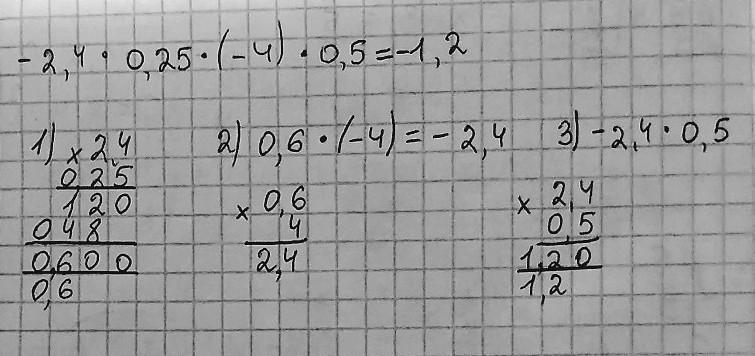 -2,4 · 0,25 · (-4) · 0,5 = -1,2
1) × 2,4
0,25
120
048
0,600
0,6
2) 0,6 · (-4) = -2,4
× 0,6
4
2,4
3) -2,4 · 0,5
× 2,4
0,5
1,20
1,2